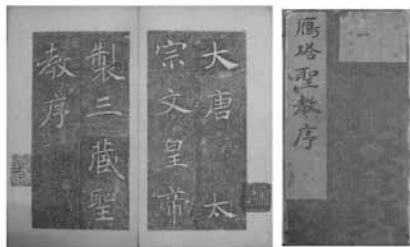 大唐太
宗文皇帝
製三藏聖
教序
鴈塔聖教序